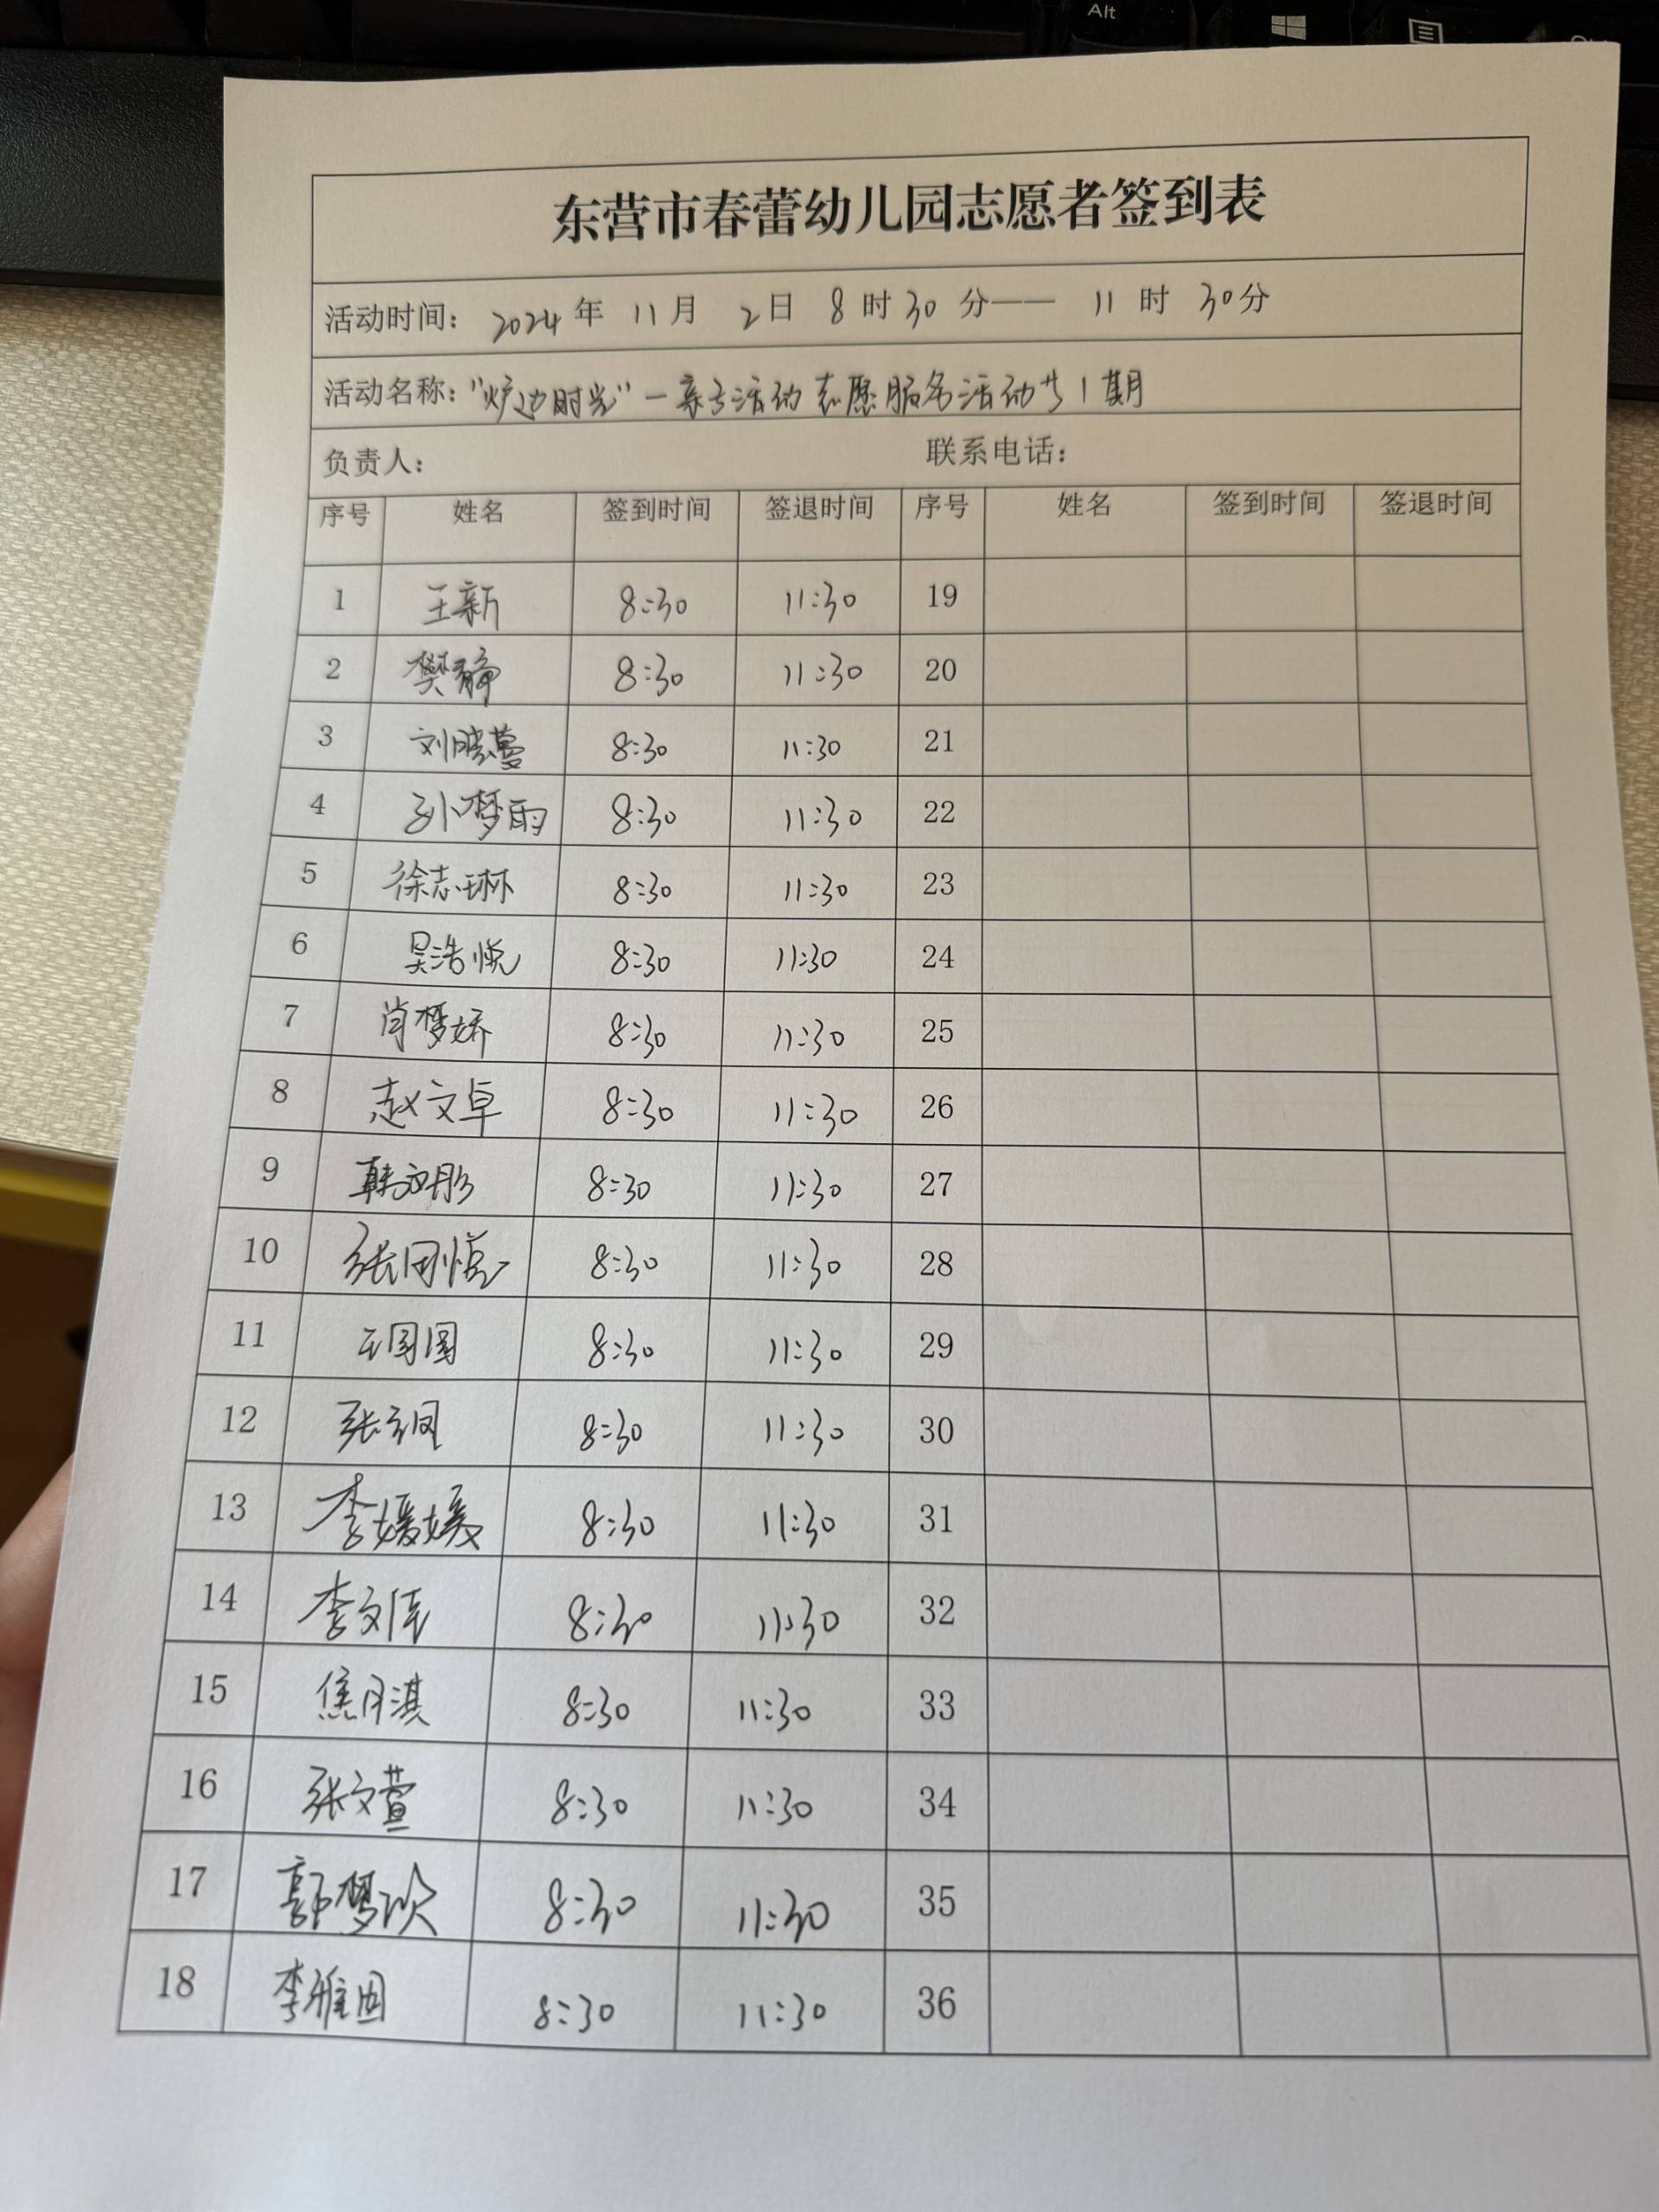 Alt
东营市春蕾幼儿园志愿者签到表
活动时间: 2024 年 11 月 2 日 8 时 30 分—— 11 时 30 分
活动名称: "炉边时光"-亲子活动志愿服务活动第1期
负责人: 联系电话:
序号 姓名 签到时间 签退时间 序号 姓名 签到时间 签退时间
1 王新 8:30 11:30 19
2 樊静 8:30 11:30 20
3 刘晓蔓 8:30 11:30 21
4 孙梦雨 8:30 11:30 22
5 徐志琳 8:30 11:30 23
6 吴浩悦 8:30 11:30 24
7 肖梦娇 8:30 11:30 25
8 赵文卓 8:30 11:30 26
9 韩文彤 8:30 11:30 27
10 8:30 11:30 28
11 王圆圆 8:30 11:30 29
12 8:30 11:30 30
13 李媛媛 8:30 11:30 31
14 李文佳 8:30 11:30 32
15 焦月淇 8:30 11:30 33
16 张文萱 8:30 11:30 34
17 郭梦欣 8:30 11:30 35
18 8:30 11:30 36